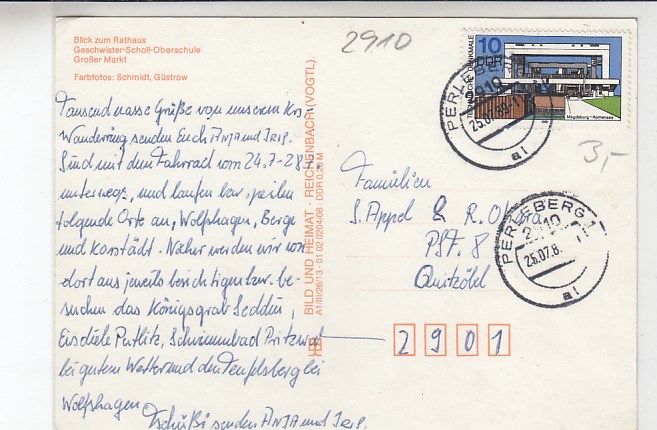 Blick zum Rathaus
Geschwister-Scholl-Oberschule
Großer Markt
Farbfotos: Schmidt, Güstrow
Tausend nasse Grüße von unserem
Wanderung senden Euch ANJA und
Sind mit dem Fahrrad vom 24.7-28.7.
unterwegs, und laufen bzw.
folgende Orte an, Wolfshagen, Berge
und Karstädt. Näher werden wir von
dort aus jeweils besichtigen bzw. be-
suchen das Königsgrab Seddin,
Eisdiele Putlitz, Schwimmbad Pritzwalk
bei gutem Wetter und den Teufelsberg bei
Wolfshagen
Tschüßi senden ANJA und
BILD UND HEIMAT · REICHENBACH (VOGTL)
A1/III/26/13 · 01 02 0204/08 · DDR 0,20 M
2910
10
DDR
TECHNISCHE DENKMALE
Magdeburg-Rothensee
PERLEBERG 1
2910
25.07.8
al
PERLEBERG 1
2910
25.07.8
al
3,-
Familien
S. Appel & R.
PSF. 8
Quitzöbel
2901